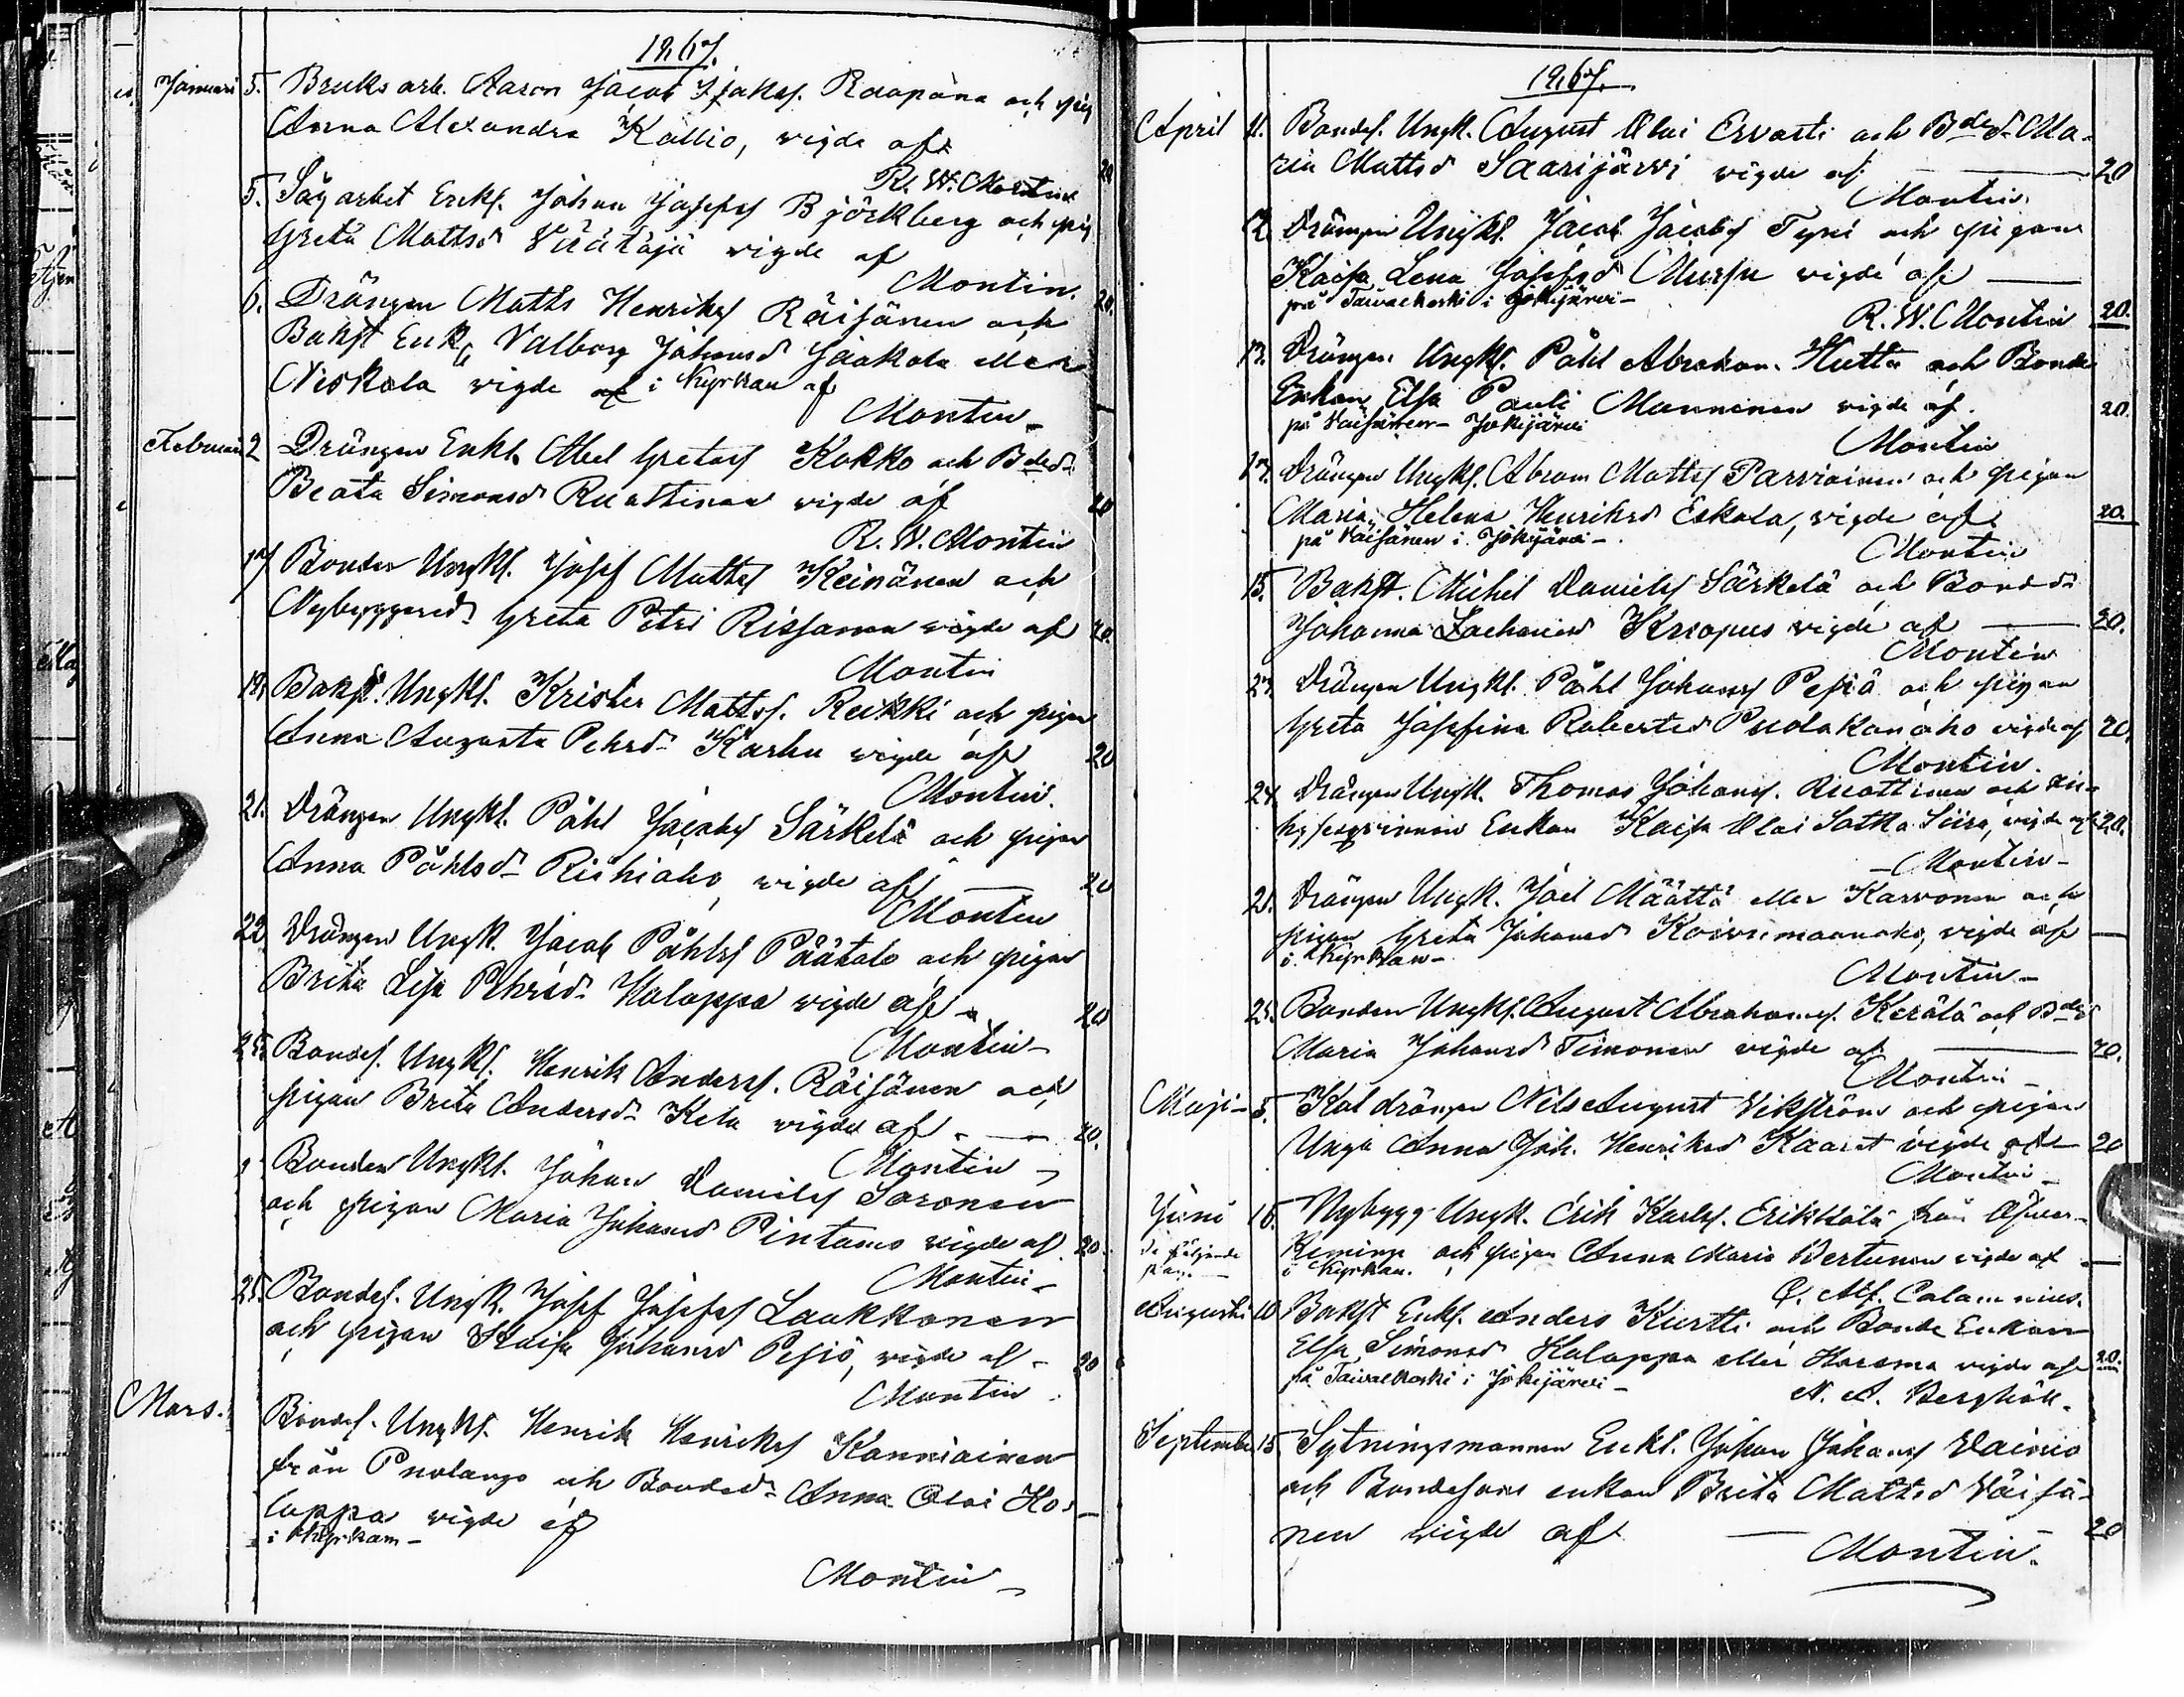 1867.
Januari 5. Bruksarb. Aaron Jacob Isaksf. Raapana och pig
Anna Alexandra Kallio, vigde af
R. W. Montin 20
5. Sågarbet Enkl. Johan Josefsf Björkberg och pig
Greta Mattsd Väätäjä vigde af
Montin. 20.
6. Drängen Matts Henriksf Räisänen och
Bakst Enk, Valborg Johansd Jaakola eller
Niskala vigde af i Kyrkan af
Montin –
Februari 2 Drängen Enkl. Abel Gretasf Kokko och Bded.
Beata Simonsd Ruottinen vigde af 20
R. W. Montin
17 Bonden Ungkl. Josef Mattsf Keinänen och
Nybyggared. Greta Petri Rissanen vigde af 20.
Montin
19. Bakst. Ungkl. Krister Mattsf. Reikki och pigan
Anna Augusta Pehrsd. Karhu vigde af 20
Montin.
21. Drängen Ungkl. Påhl Jacobsf Särkelä och pigan
Anna Påhlsd. Riihiaho, vigde af — 20
Montin
22 Drängen Ungk. Jacob Påhlsf Päätalo och pigan
Brita Lisa Pehrsd. Halappa vigde af – 20
Montin –
25. Bondes. Ungkl. Henrik Andersf. Räisänen och
pigan Brita Andersd. Kela vigde af – — 20.
Montin –
Bonden Ungkl. Johan Danielsf Soronen
och pigan Maria Johansd Pintamo vigde af 20.
Montin –
25. Bondes. Ungk. Josef Josefsf Laukkanen
och pigan Kaisa Johansd Pesiö, vigde af – 20
Montin
Mars. Bondes. Ungkl. Henrik Henriksf Kanniainen
från Puolango och Bonded. Anna Olai Ho-
lappa vigde af —
i Kyrkan –
Montin –
1867.
April 11. Bondes. Ungk. August Olai Ervasti och Bded. Ma-
ria Mattsd Saarijärvi vigde af — 20
Montin.
12. Drängen Ungkl. Jacob Jacobsf Tyni och pigan
Kaisa Lena Josefsd Mursu vigde af —
på Taivalkoski i Jokijärvi –
R. W. Montin 20.
13. Drängen Ungkl. Påhl Abraham. Hutta och Bonde
Enkan Elsa Pauli Manninen vigde af. 20.
på Väisänen – Jokijärvi
Montin
13. Drängen Ungkl. Abram Mattsf Parviainen och pigan
Maria Helena Henriksd Eskola, vigde af. 20.
på Väisänen i Jokijärvi –
Montin
15. Bakst. Michel Danielsf Särkelä och Bonded.
Johanna Zachariasd Kreopus vigde af — 20.
Montin
23. Drängen Ungkl. Påhl Johansf Pesiö och pigan
Greta Josefina Robertsd Puolakanaho vigde af 20.
Montin.
24. Drängen Ungkl. Thomas Johansf. Ruottinen och
Enkan Kaisa Olai Sotka Siira, vigde af 20.
– Montin –
Drängen Ungk. Joel Määttä eller Karvonen och
pigan Greta Johansd Koivumaanaho, vigde af —
i Kyrkan –
Montin –
25. Bonden Ungkl. August Abrahamsf. Kerälä och Bded
Maria Johansd Timonen vigde af — 20.
Montin –
Maji – 5. Kol drängen Nils August Vikström och pigan
Unga Anna Joh. Henriksd Kaarat vigde af — 20
Montin –
Juni 16. Nybygg Ungk. Erik Karlsf. Erikkilä från Öfver-
Kemings och pigan Anna Maria Vertunen vigde af —
i Kyrkan.
C. Alf. Calamnius.
Augusti 10 Bakst Enkl. Anders Kurtti och Bonde Enkan
Elsa Simonsd Halappa eller Harsma vigde af 20.
på Taivalkoski i Jokijärvi –
N. A. Berghäll.
September 15. Sytningsmannen Enkl. Johan Johansf Vainio
och Bondesons enkan Brita Mattsd Väisä-
nen vigde af — 20
Montin.